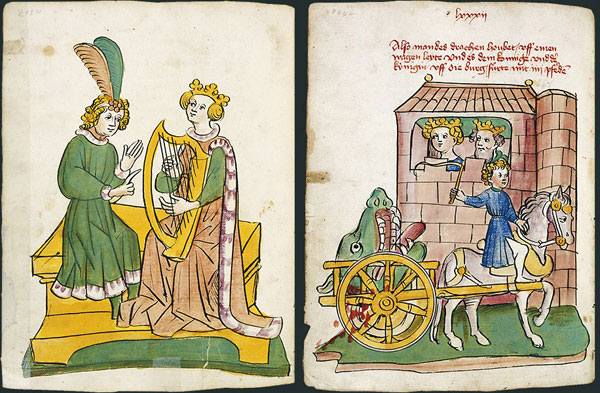 lxxxii
Also man des drachen houbet / vff einen
wagen leyte Vnd es dem konnige vnd der
konigin vff die burg / furte mit iiij pfeden